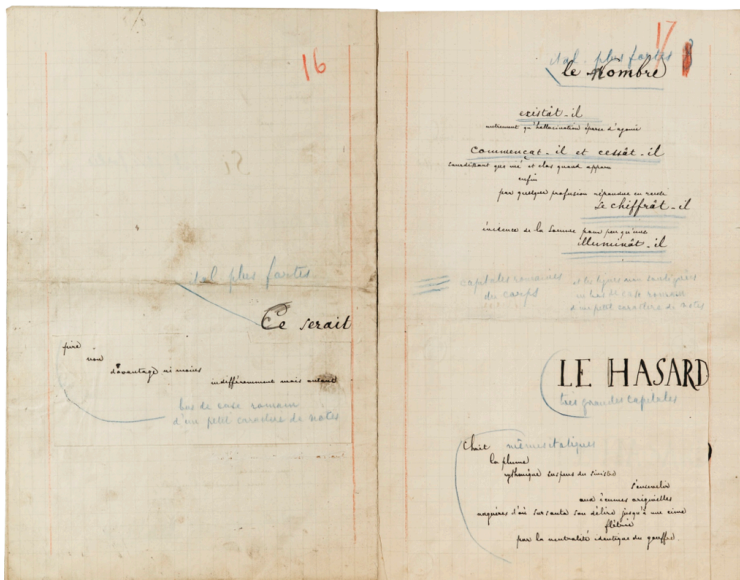 16
ital. plus fortes.
Ce serait
pire
non
davantage ni moins
indifféremment mais autant
bas de casse romain
d'un petit caractère de notes
17
ital. plus fortes
le Nombre
existât-il
autrement qu'hallucination éparse d'agonie
commençât-il et cessât-il
sourdant que nié et clos quand apparu
enfin
par quelque profusion répandue en rareté
se chiffrât-il
évidence de la somme pour peu qu'une
illuminât-il
capitales romaines
du corps
et les lignes non soulignées
en bas de casse romain
d'un petit caractère de notes
LE HASARD
très grandes capitales
Choit mêmes italiques
la plume
rythmique suspens du sinistre
s'ensevelir
aux écumes originelles
naguères d'où sursauta son délire jusqu'à une cime
flétrie
par la neutralité identique du gouffre